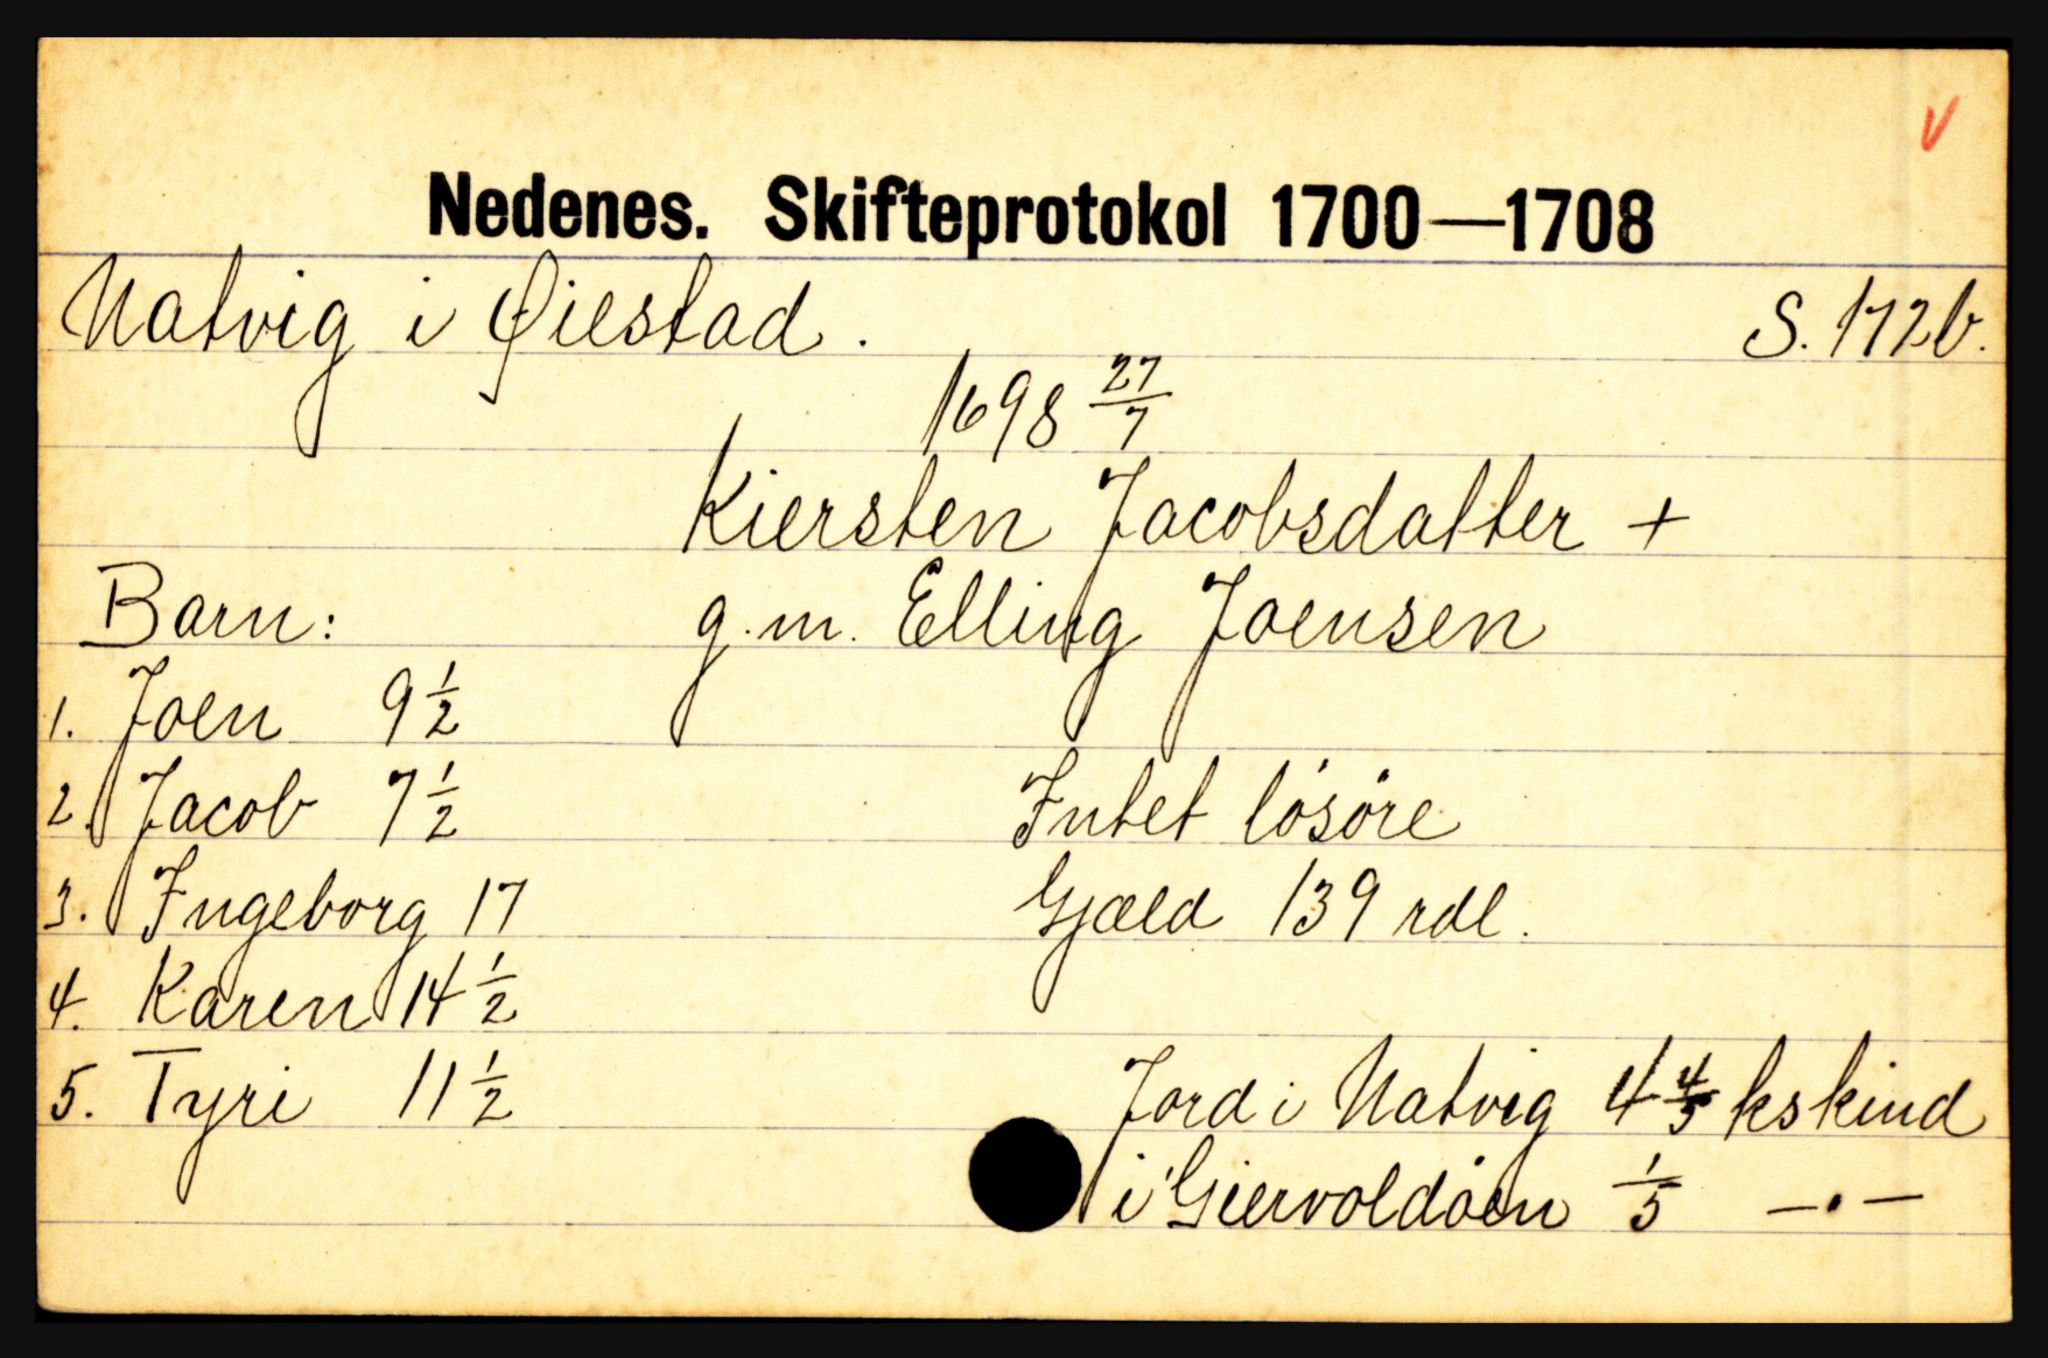 V
Nedenes. Skifteprotokol 1700—1708
Natvig i Øiestad. S. 172b.
1698 27/7
Kiersten Jacobsdatter +
Barn: g.m. Elling Joensen
1. Joen 9 1/2
2. Jacob 7 1/2 Intet lösöre
3. Ingeborg 17 Gjæld 139 rdl.
4. Karen 14 1/2
5. Tyri 11 1/2 Jord i Natvig 4 4/5 kskind
i Giervoldöen 1/5 —.—